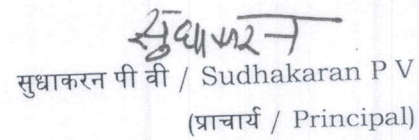 सुधाकरन
सुधाकरन पी वी / Sudhakaran P V
(प्राचार्य / Principal)